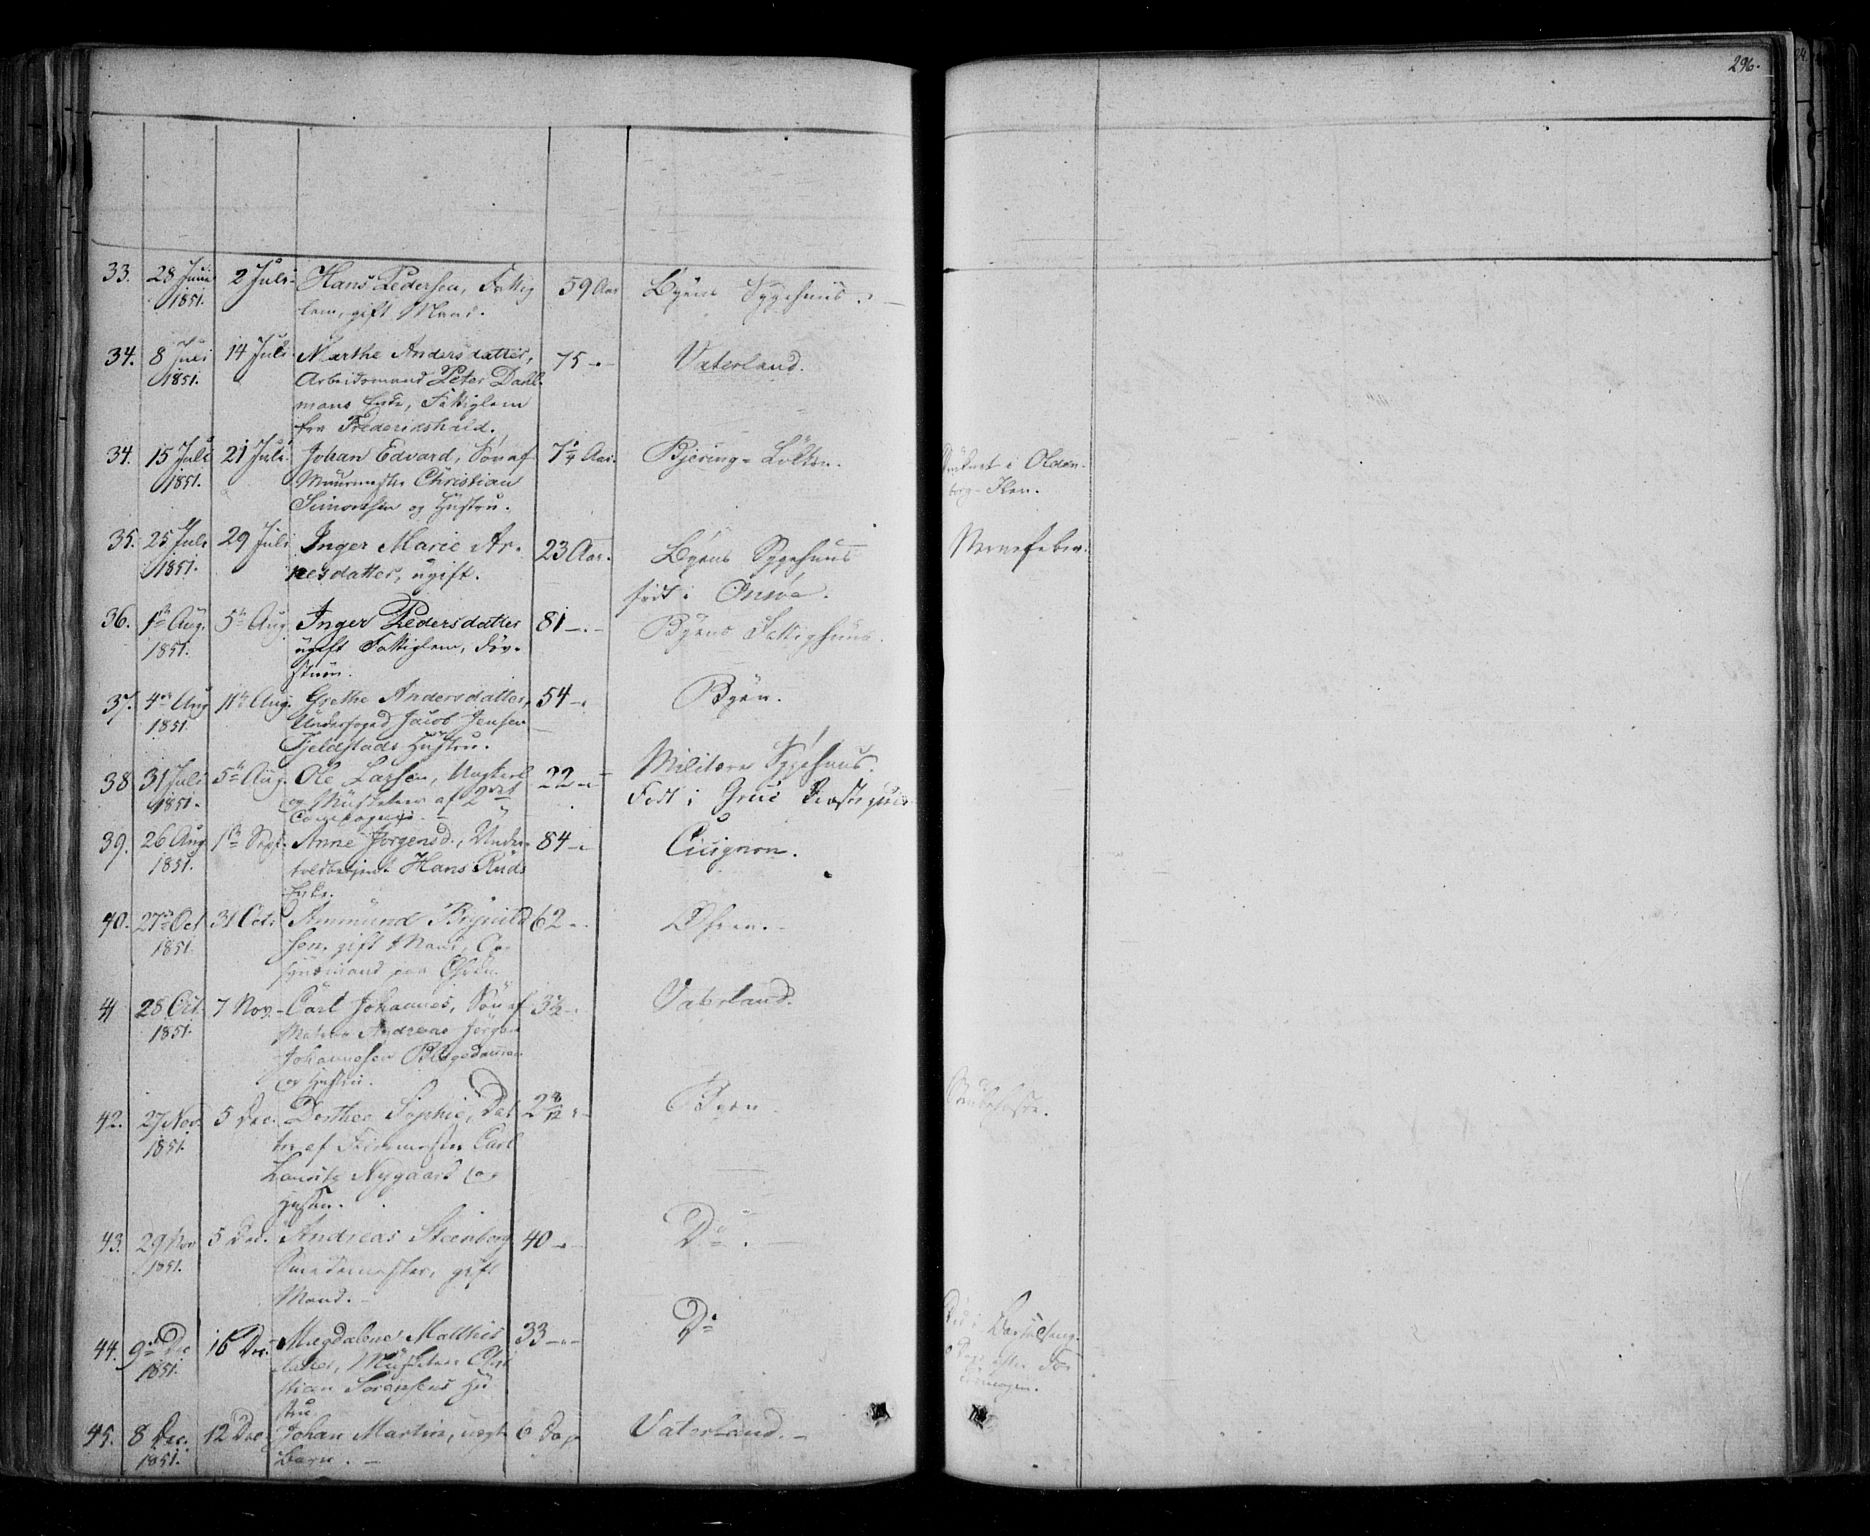 296.
33. 28 Juni 2 Juli Hans Pedersen, Fattig 59 Aar Byens Sygehuus.
1851. lem, gift Mand.
34. 8 Juli 14 Juli Marthe Andersdatter, 75 - Vaterland.
1851. Arbeidsmand Peter Dahl
mans Enke, Fattiglem
fra Frederikshald.
34. 15 Juli 21 Juli Johan Edvard, Søn af 7 1/4 Aar. Bjering - Løkken. Druknet i Olden
1851. Muurmester Christian borg-Elven.
Simonsen og Hustru.
35. 25 Juli 29 Juli Inger Marie Ar- 23 Aar. Byens Sygehuus Nervefeber.
1851. nesdatter, ugift. født i Onsøe.
36. 1ste Aug. 5te Aug. Inger Pedersdatter 81 - Byens Fattighuus.
1851. ugift Fattiglem, døv-
stum.
37. 4de Aug 11te Aug. Grethe Andersdatter, 54 - Byen.
1851. Underfoged Jacob Jensen
Fjeldstads Hustru.
38 31 Juli 5te Aug. Ole Larsen, Ungkarl 22 - Militære Sygehuus.
1851. og Musketeer af 2det Født i Grue Præstegjeld
Compagnie
39. 26 Aug 1ste Sept. Anne Jørgensd., Under- 84 -
1851. toldbetjent Hans Ruds
Enke.
40. 27de Oct 31 Oct. Ammund 62 - Øhren.
1851. sen, gift Mand, Op-
synsmand paa Øhren
41 28 Oct. 7 Nov. Carl Johannes, Søn af 3 1/2 - Vaterland.
1851. Andreas Jørgen
Johannesen
og Hustru.
42. 27 Nov. 5 Dec. Dorthea Sophie, Dat 2 8/12 - Byen
1851. ter af Carl
Nygaard og
Hustru.
43. 29 Nov 5 Dec. Andreas Steenberg 40 - Do.
1851. Smedemester, gift
Mand.
44. 9de Dec 16 Dec. Magdalene Matthis 33 - Do Død i Barselseng
1851. datter, Musketeer Chri Dage efter For
stian Sørensens Hu løsningen.
stru
45. 8 Dec. 12 Dec. Johan Martin, uægte 6 Dage Vaterland.
1851. Barn.